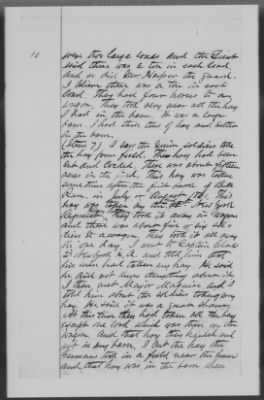 12
were two large loads and the Lieut
said there was a ton in each load.
And so did the guard.
I believe there was a ton in each
load. They had four horses to a
wagon. They took very near all the hay
I had in the barn. It was a large
barn. I had three tons of hay and better
in the barn.
(Item 7) I saw the Union soldiers take
the hay from field. The hay had been
cut and cocked. There was about fifteen
acres in the field. This hay was taken
some time after the first battle of Bull
Run, in July or August 1861. This
hay was taken by New York
Regiment, they took it away in wagons
and there was about five or six
to a wagon. They took it all away
in one day. I went to Captain
2d New York H. A. and told him that
his men had taken my hay. He said
he did not know anything about it.
I then met Major Maguire and I
told him about the soldiers taking my
hay. He said it was a great shame.
At this time they had taken all the hay
except one load which was then on the
wagon. And that hay they hauled and
put in my barn. I cut the hay the
Germans took in a field near the house
and that hay was in the barn